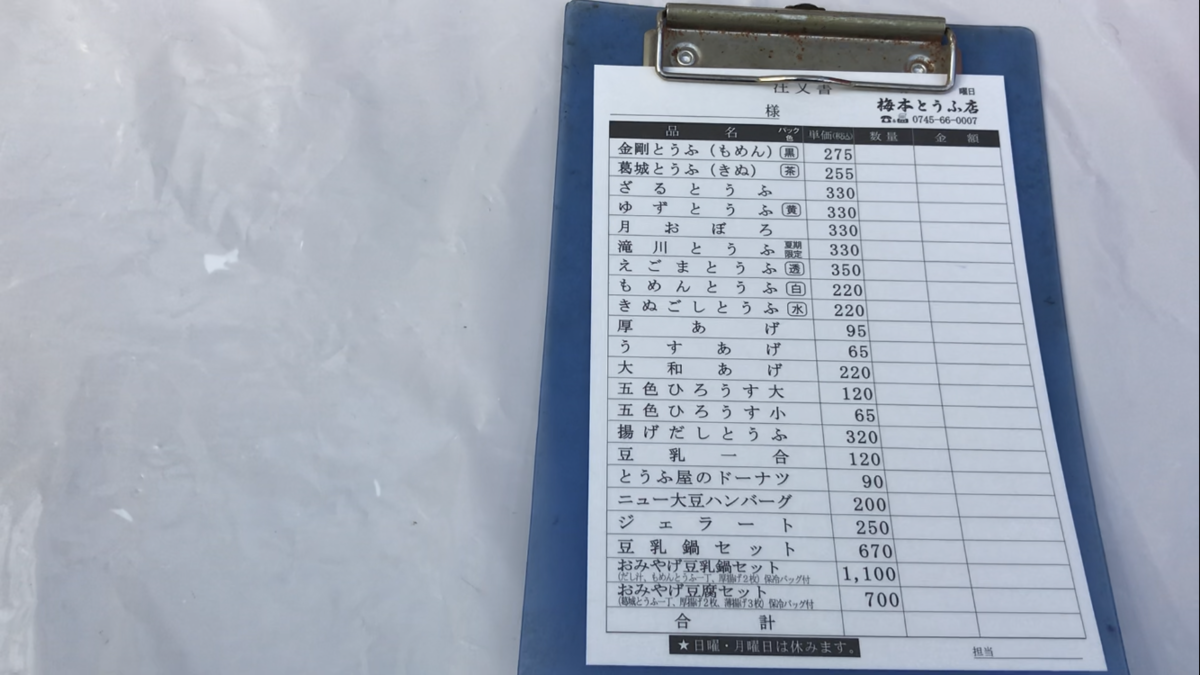 注文書
曜日
様
梅本とうふ店
☎ 0745-66-0007
品名 パック色 単価(税込) 数量 金額
金剛とうふ(もめん) 黒 275
葛城とうふ(きぬ) 茶 255
ざるとうふ 330
ゆずとうふ 黄 330
月おぼろ 330
滝川とうふ 夏期限定 330
えごまとうふ 透 350
もめんとうふ 白 220
きぬごしとうふ 水 220
厚あげ 95
うすあげ 65
大和あげ 220
五色ひろうす大 120
五色ひろうす小 65
揚げだしとうふ 320
豆乳一合 120
とうふ屋のドーナツ 90
ニュー大豆ハンバーグ 200
ジェラート 250
豆乳鍋セット 670
おみやげ豆乳鍋セット 1,100
(だし汁、もめんとうふ一丁、厚揚げ2枚) 保冷バッグ付
おみやげ豆腐セット 700
(葛城とうふ一丁、厚揚げ2枚、薄揚げ3枚) 保冷バッグ付
合計
★日曜・月曜日は休みます。
担当